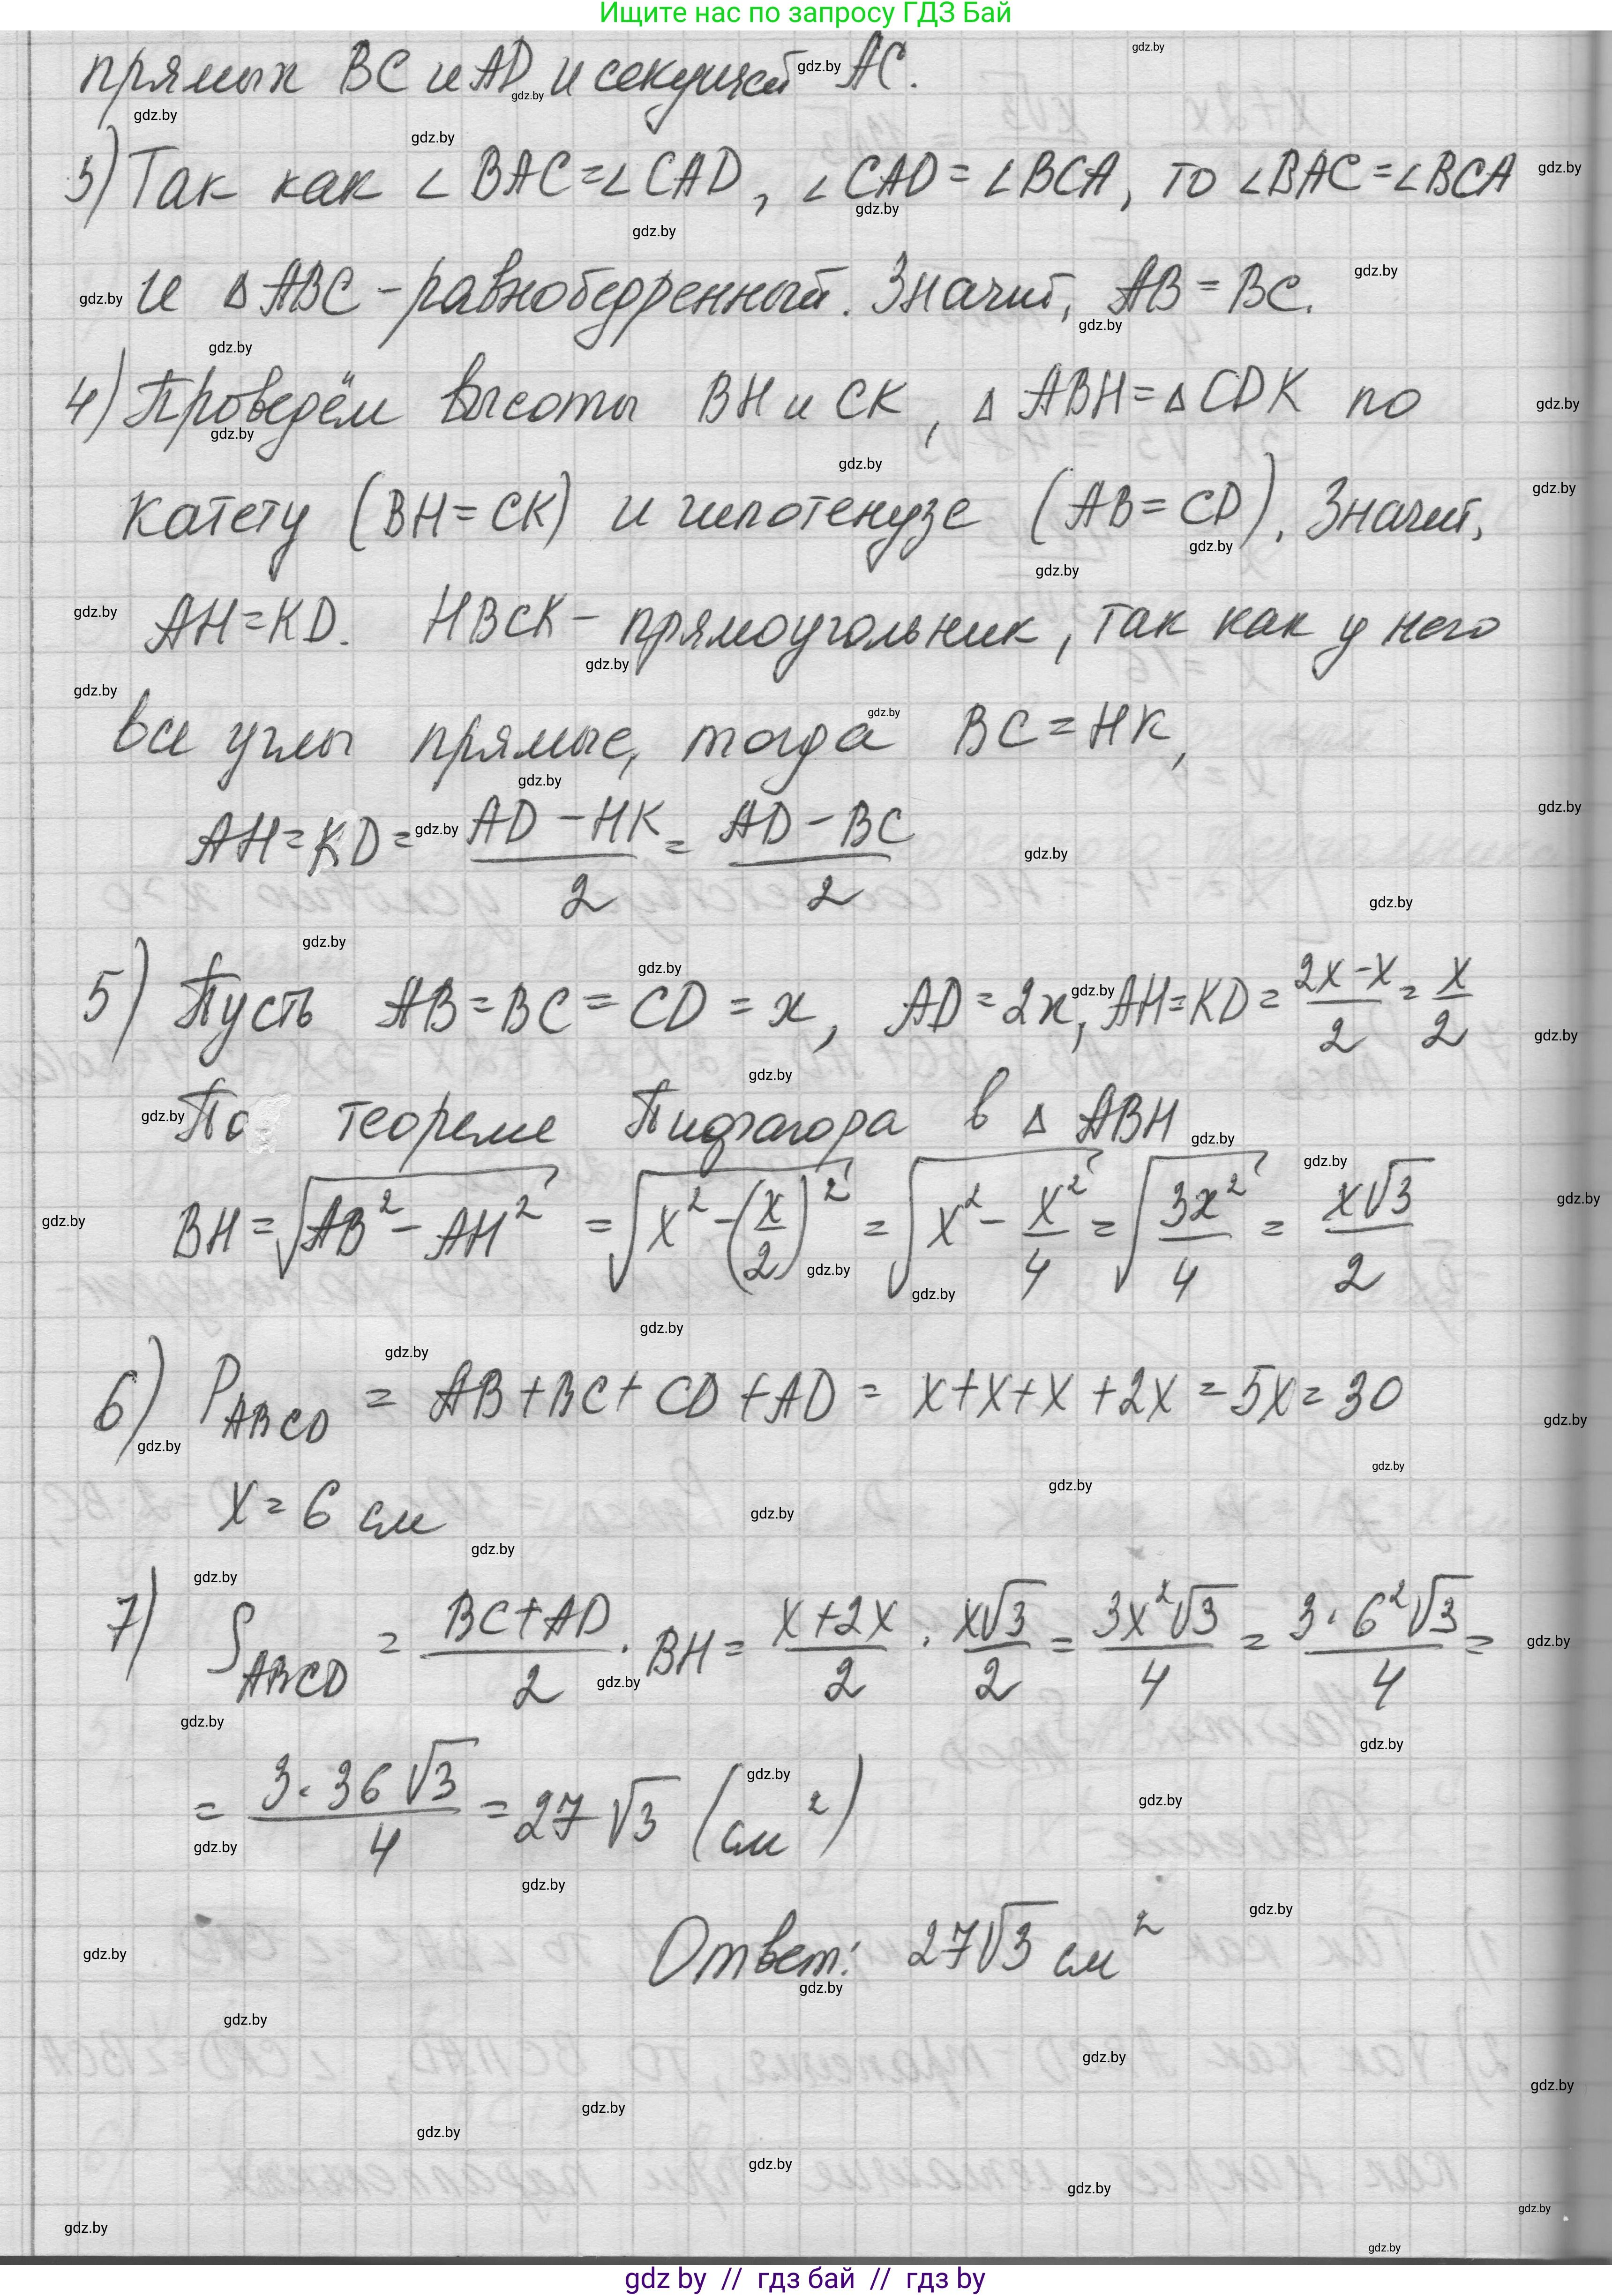 Ищите нас по запросу ГДЗ Бай
прямых BC и AD и секущей AC.
3) Так как ∠BAC=∠CAD, ∠CAD=∠BCA, то ∠BAC=∠BCA
и ΔABC - равнобедренный. Значит, AB=BC.
4) Проведём высоты BH и CK, ΔABH=ΔCDK по
катету (BH=CK) и гипотенузе (AB=CD). Значит,
AH=KD. HBCK - прямоугольник, так как у него
все углы прямые, тогда BC=HK,
AH=KD= (AD-HK)/2 = (AD-BC)/2
5) Пусть AB=BC=CD=x, AD=2x, AH=KD= (2x-x)/2 = x/2
По теореме Пифагора в ΔABH
BH=√(AB²-AH²) = √(x²-(x/2)²) = √(x²-x²/4) = √(3x²/4) = x√3/2
6) P_ABCD = AB+BC+CD+AD= x+x+x+2x=5x=30
x=6 см
7) S_ABCD = (BC+AD)/2 · BH= (x+2x)/2 · x√3/2 = 3x²√3/4 = 3·6²√3/4 =
= 3·36√3/4 = 27√3 (см²)
Ответ: 27√3 см²
gdz by // гдз бай // гдз by